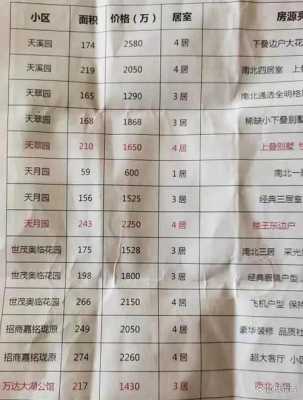 小区 面积 价格（万） 居室 房源亮
天溪园 174 2580 4居 下叠边户大花
天溪园 219 2050 4居 南北四居室
天翠园 165 1290 3居 南北通透全明格
天翠园 168 1868 3居 稀缺小下叠边户
天翠园 210 1650 4居 上叠别墅
天月园 59 600 1居 南北一
天月园 156 1525 3居 经典三居室
天月园 243 2250 4居 楼王东边户
世茂奥临花园 175 1528 3居 南北三居 采光
世茂奥临花园 198 1800 3居 经典眼镜户型
世茂奥临花园 266 2150 4居 飞机户型
招商嘉铭珑原 249 2050 4居 豪华装修 品质社
招商嘉铭珑原 274 2260 4居 超大客厅 小
万达大湖公馆 217 1430 3居 南北